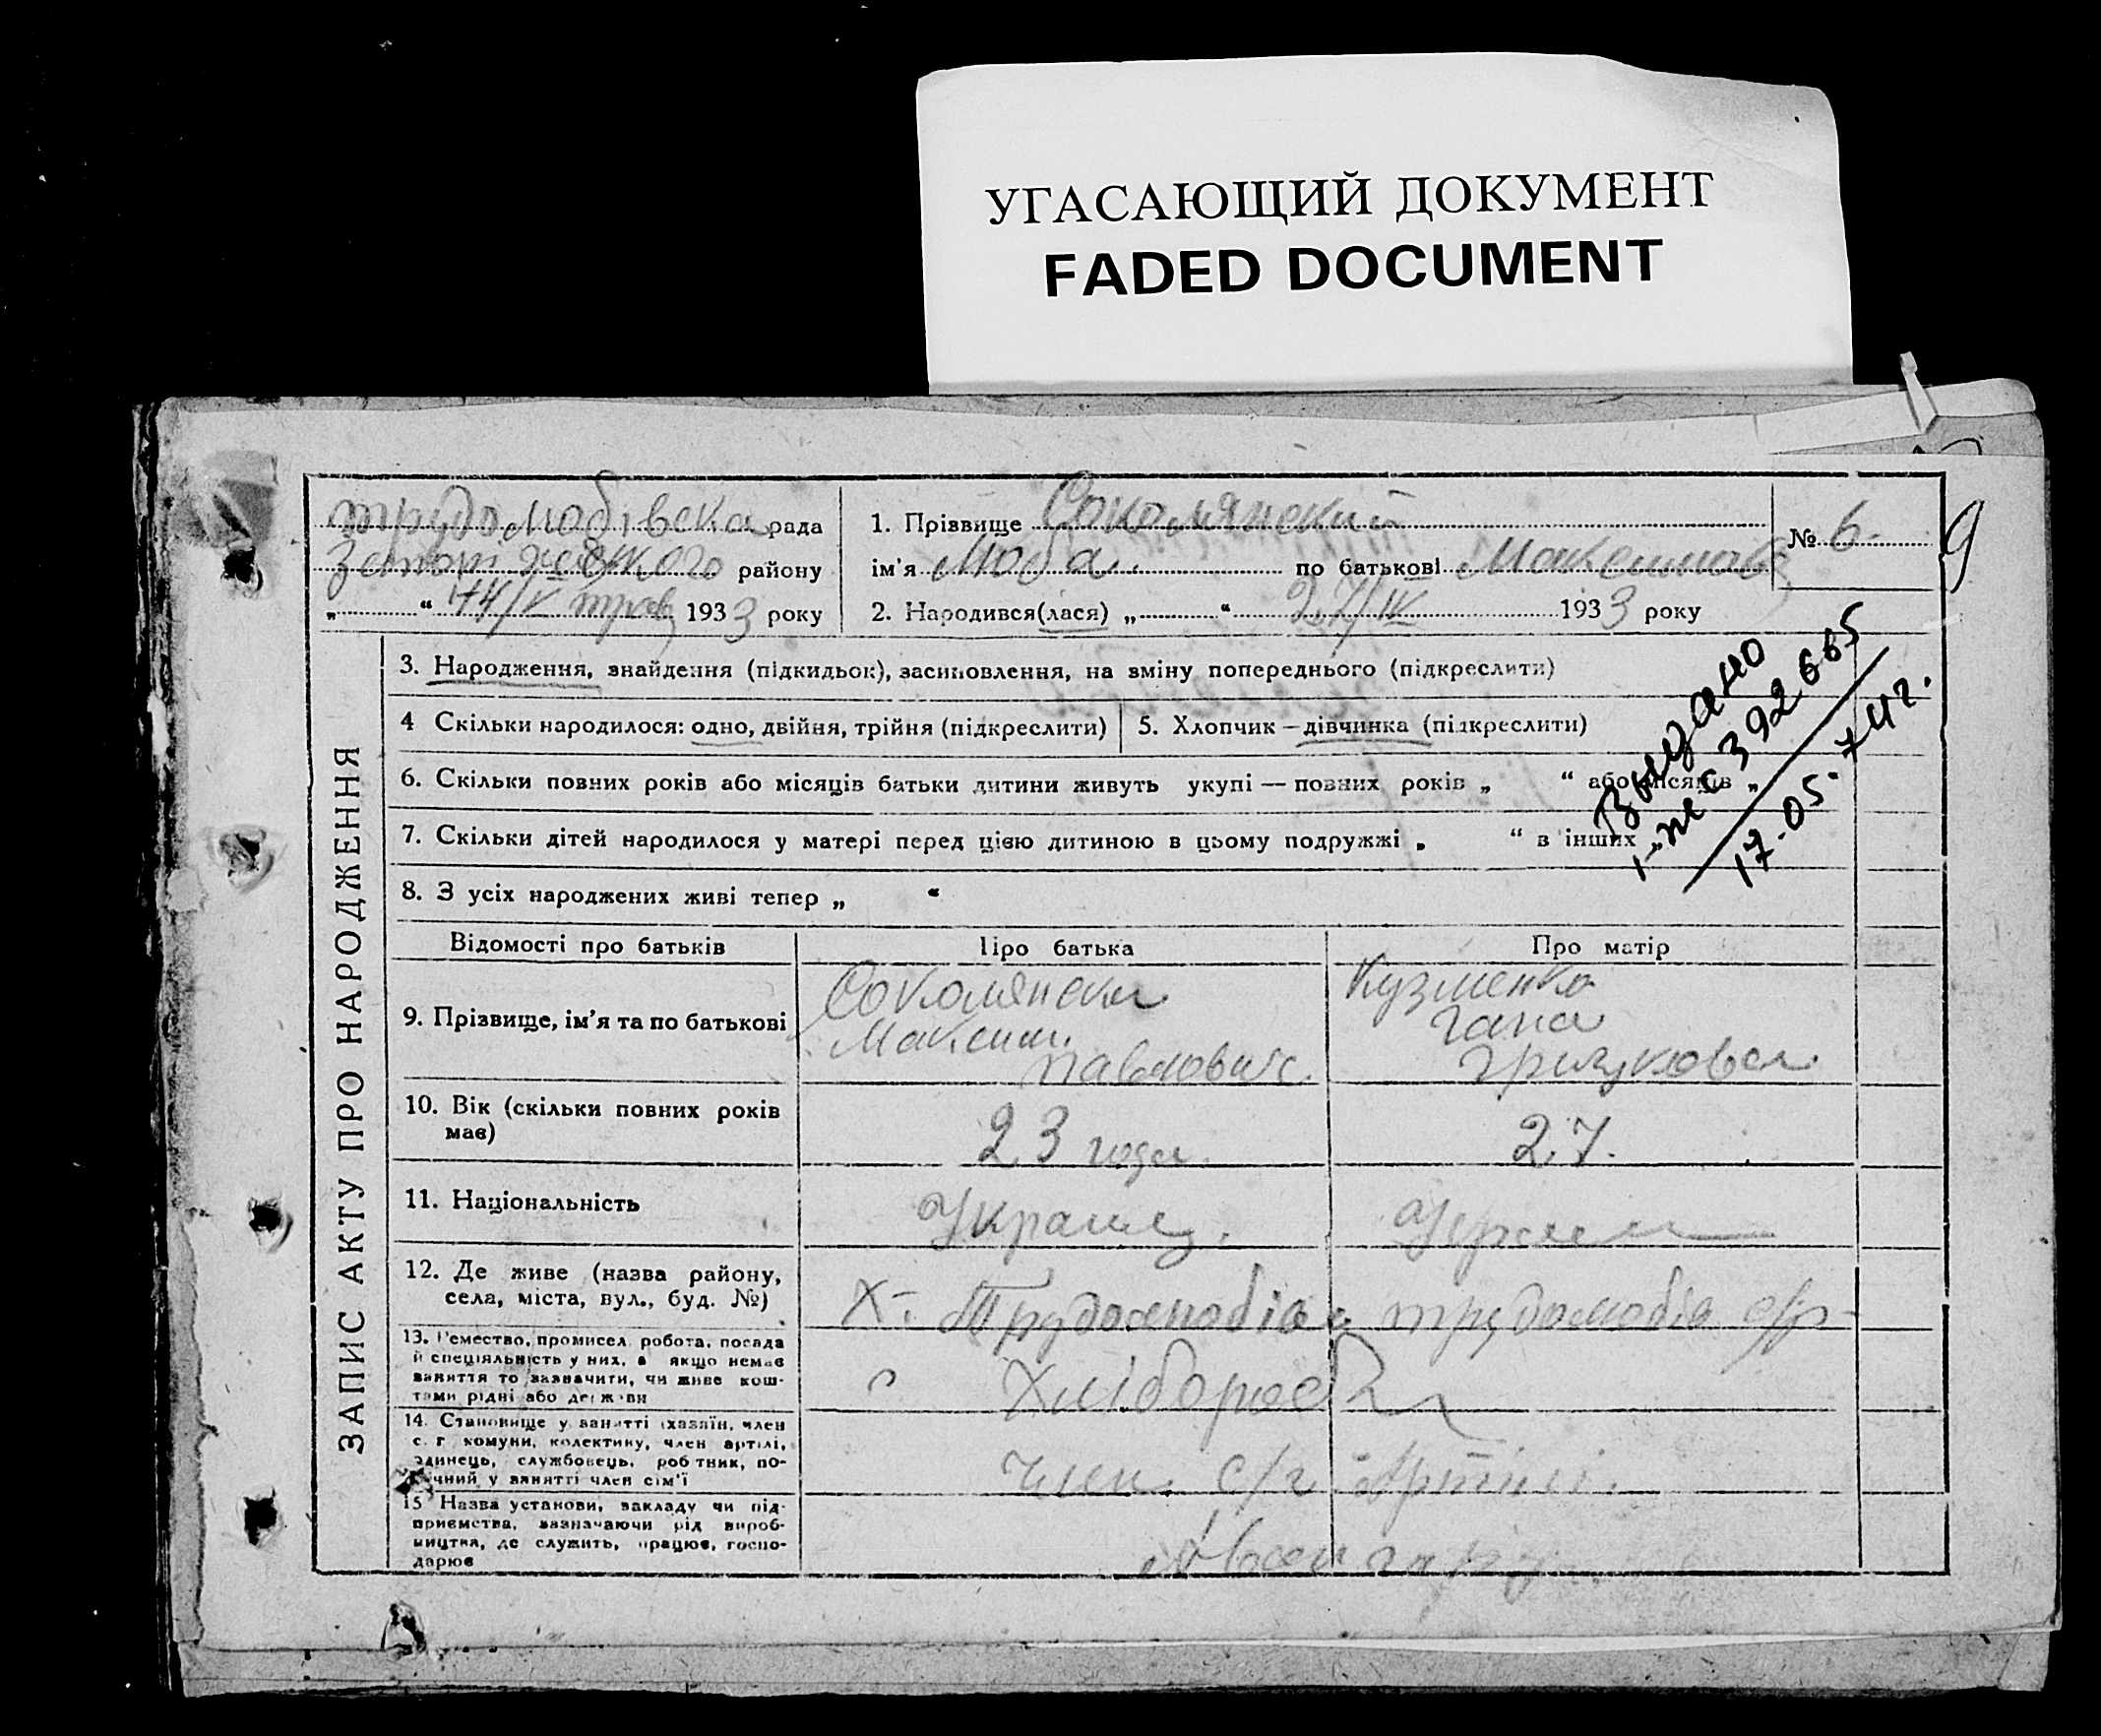 УГАСАЮЩИЙ ДОКУМЕНТ
FADED DOCUMENT
9
трудолюбівска рада
району
„ “ 14/V трав 1933 року
1. Прізвище Соколянский
ім'я Люба. по батькові Максимов
№ 6
2. Народився(лася) „ “ 27/IV 1933 року
ЗАПИС АКТУ ПРО НАРОДЖЕННЯ
3. Народження, знайдення (підкидьок), засиновлення, на зміну попереднього (підкреслити)
4 Скільки народилося: одно, двійня, трійня (підкреслити)
5. Хлопчик – дівчинка (підкреслити)
6. Скільки повних років або місяців батьки дитини живуть укупі — повних років „ “ або місяців „
7. Скільки дітей народилося у матері перед цією дитиною в цьому подружжі „ “ в інших „
8. З усіх народжених живі тепер „ “
Выдано
392665
17.05.74г.
Відомості про батьків
Про батька
Про матір
9. Прізвище, ім'я та по батькові
Соколянски
Максим.
Павлович.
Кузменко
Гана
10. Вік (скільки повних років
має)
23 года.
27.
11. Національність
Украинц.
12. Де живе (назва району,
села, міста, вул., буд. №)
Х. Трудолюбів
трудолюбів с/р
13. Ремество, промисел, робота, посада
й спеціяльність у них, а якщо немає
заняття то зазначити, чи живе кош-
тами рідні або держави
Хлібороб
14. Становище у занятті (хазяїн, член
с. г. комуни, колективу, член артілі,
одинець, службовець, робітник, по-
мічний у занятті член сім'ї
член. с/г Артилі.
15 Назва установи, закладу чи під-
приємства, зазначаючи рід вироб-
ництва, де служить, працює, госпо-
дарює